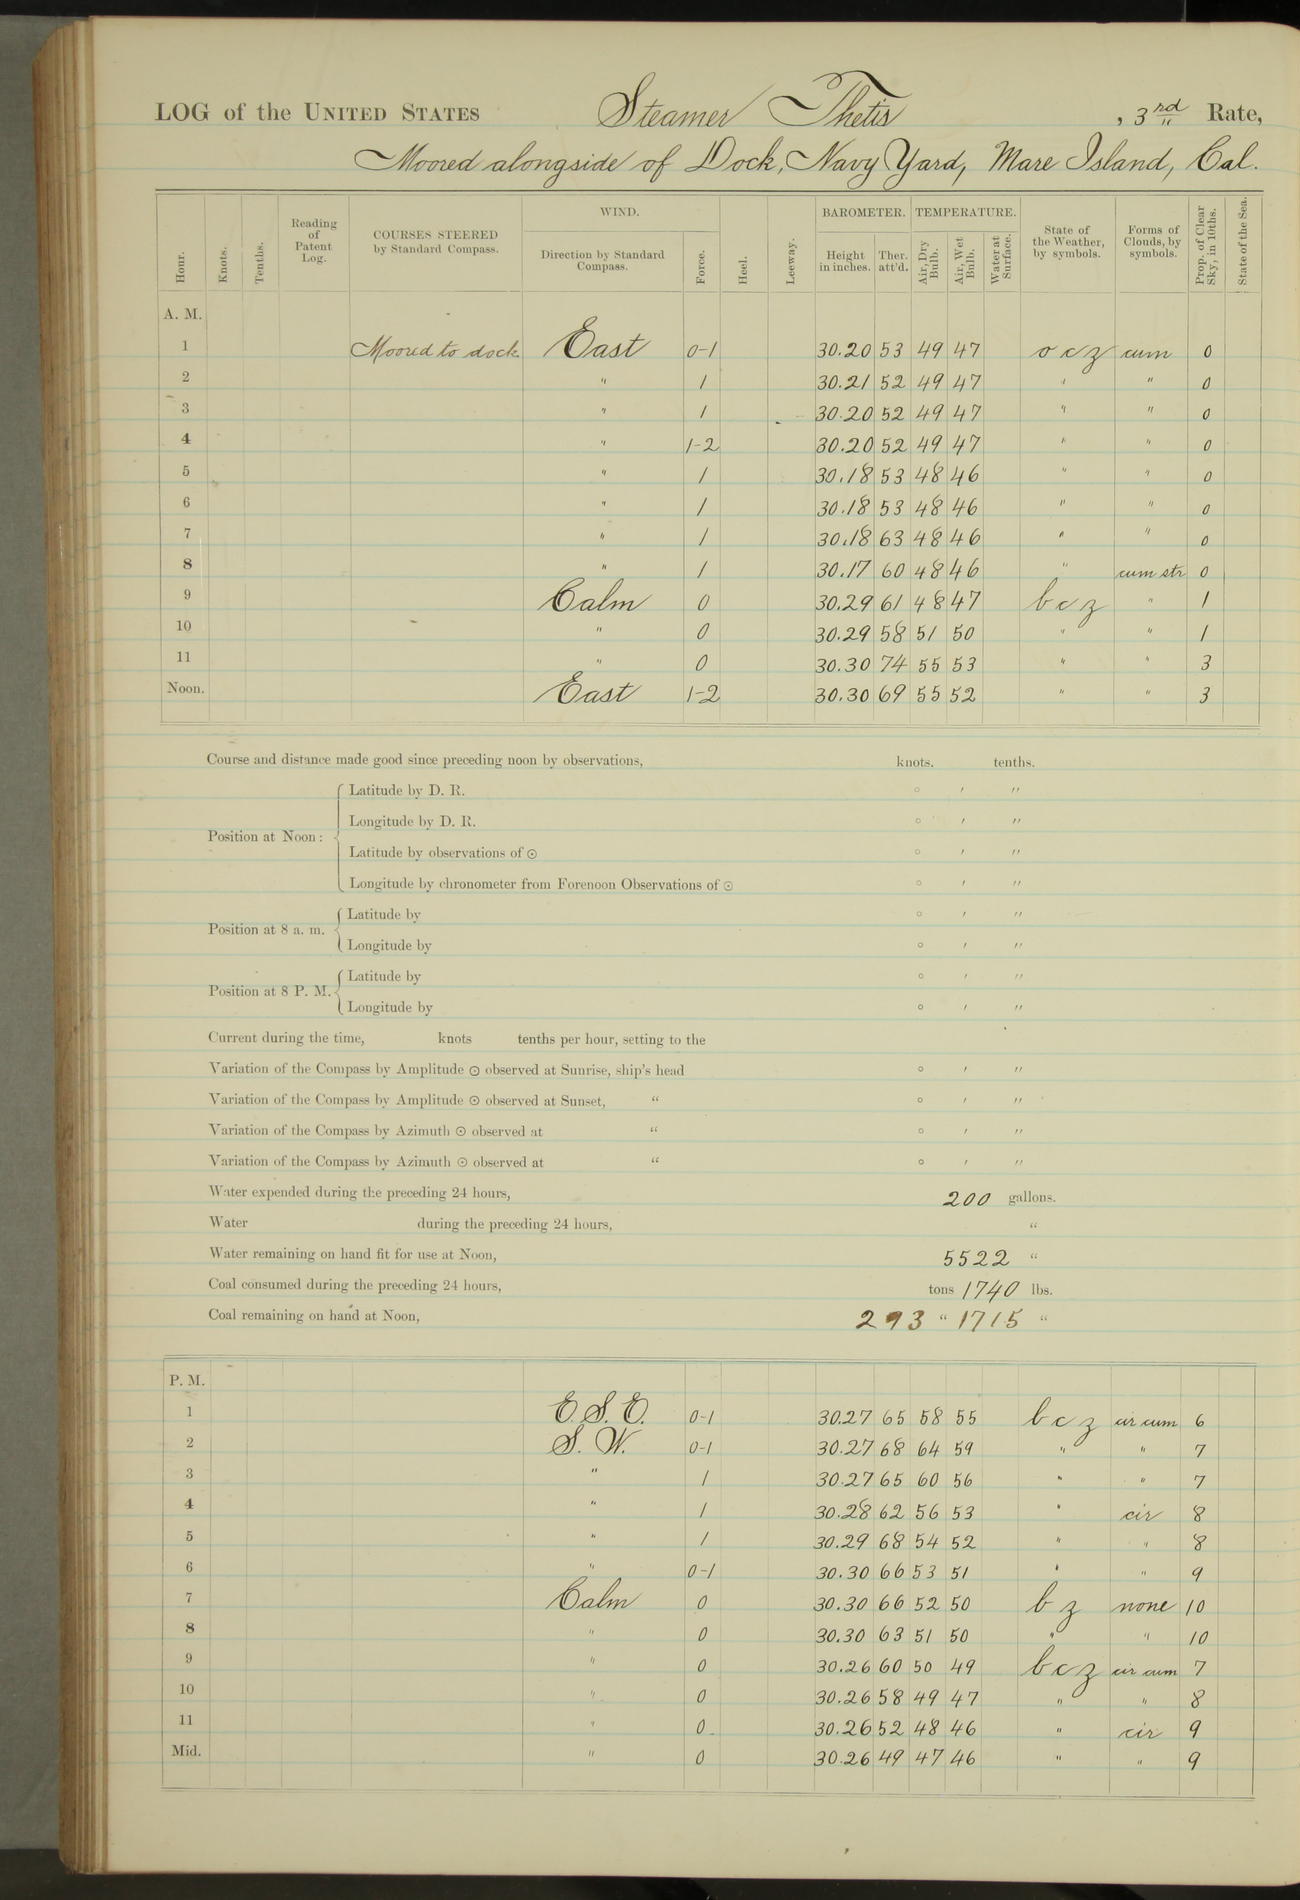 LOG of the UNITED STATES Steamer Thetis , 3rd Rate,
Moored alongside of Dock, Navy Yard, Mare Island, Cal.
Hour. Knots. Tenths. Reading of Patent Log. COURSES STEERED by Standard Compass. WIND. Direction by Standard Compass. Force. Heel. Leeway. BAROMETER. Height in inches. Ther. att'd. TEMPERATURE. Air, Dry Bulb. Air, Wet Bulb. Water at Surface. State of the Weather, by symbols. Forms of Clouds, by symbols. Prop. of Clear Sky, in 10ths. State of the Sea.
A. M.
1 Moored to dock East 0-1 30.20 53 49 47 o c z cum 0
2 " 1 30.21 52 49 47 " " 0
3 " 1 30.20 52 49 47 " " 0
4 " 1-2 30.20 52 49 47 " " 0
5 " 1 30.18 53 48 46 " " 0
6 " 1 30.18 53 48 46 " " 0
7 " 1 30.18 63 48 46 " " 0
8 " 1 30.17 60 48 46 " cum str 0
9 Calm 0 30.29 61 48 47 b c z " 1
10 " 0 30.29 58 51 50 " " 1
11 " 0 30.30 74 55 53 " " 3
Noon. East 1-2 30.30 69 55 52 " " 3
Course and distance made good since preceding noon by observations, knots. tenths.
Latitude by D. R. ° ′ ″
Longitude by D. R. ° ′ ″
Position at Noon:
Latitude by observations of ☉ ° ′ ″
Longitude by chronometer from Forenoon Observations of ☉ ° ′ ″
Latitude by ° ′ ″
Position at 8 a. m.
Longitude by ° ′ ″
Latitude by ° ′ ″
Position at 8 P. M.
Longitude by ° ′ ″
Current during the time, knots tenths per hour, setting to the
Variation of the Compass by Amplitude ☉ observed at Sunrise, ship's head ° ′ ″
Variation of the Compass by Amplitude ☉ observed at Sunset, " ° ′ ″
Variation of the Compass by Azimuth ☉ observed at " ° ′ ″
Variation of the Compass by Azimuth ☉ observed at " ° ′ ″
Water expended during the preceding 24 hours, 200 gallons.
Water during the preceding 24 hours, "
Water remaining on hand fit for use at Noon, 5522 "
Coal consumed during the preceding 24 hours, tons 1740 lbs.
Coal remaining on hand at Noon, 293 " 1715 "
P. M.
1 E.S.E. 0-1 30.27 65 58 55 b c z cir cum 6
2 S. W. 0-1 30.27 68 64 59 " " 7
3 " 1 30.27 65 60 56 " " 7
4 " 1 30.28 62 56 53 " cir 8
5 " 1 30.29 68 54 52 " " 8
6 " 0-1 30.30 66 53 51 " " 9
7 Calm 0 30.30 66 52 50 b z none 10
8 " 0 30.30 63 51 50 " " 10
9 " 0 30.26 60 50 49 b c z cir cum 7
10 " 0 30.26 58 49 47 " " 8
11 " 0 30.26 52 48 46 " cir 9
Mid. " 0 30.26 49 47 46 " " 9